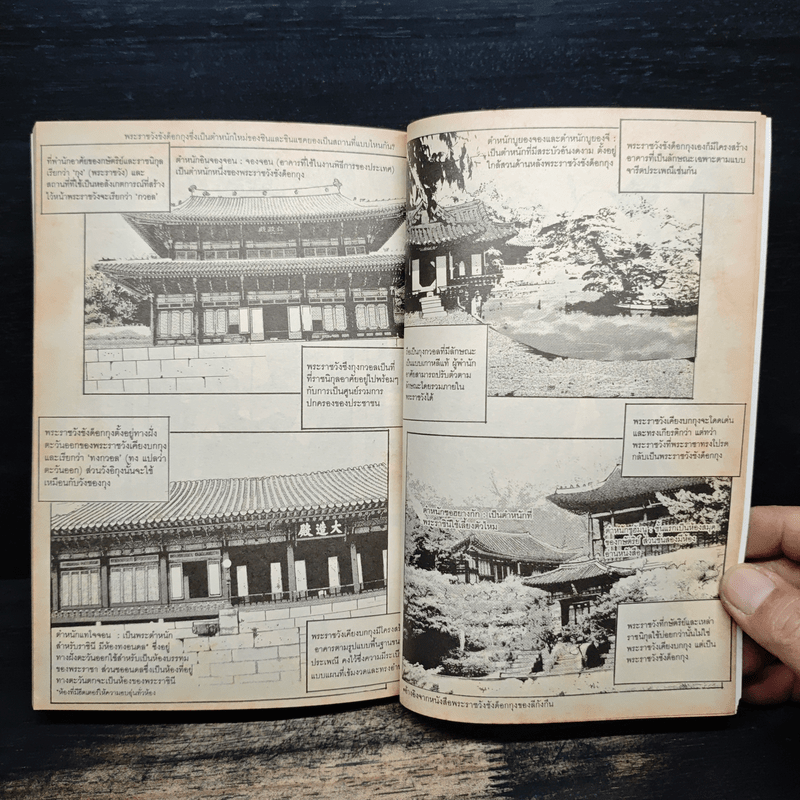 พระราชวังชังด็อกกุงซึ่งเป็นตำหนักใหม่ของชินและชินแชคยองเป็นสถานที่แบบไหนกัน?
ที่พำนักอาศัยของกษัตริย์และราชนิกุล
เรียกว่า 'กุง' (พระราชวัง) และ
สถานที่ที่ใช้เป็นหอสังเกตการณ์ที่สร้าง
ไว้หน้าพระราชวังจะเรียกว่า 'กวอล'
ตำหนักอินจองจอน : จองจอน (อาคารที่ใช้ในงานพิธีการของประเทศ)
เป็นตำหนักหนึ่งของพระราชวังชังด็อกกุง
พระราชวังซึงกวอลเป็นที่
ที่ราชนิกุลอาศัยอยู่ไปพร้อมๆ
กับการเป็นศูนย์รวมการ
ปกครองของประชาชน
พระราชวังชังด็อกกุงตั้งอยู่ทางฝั่ง
ตะวันออกของพระราชวังเคียงบกกุง
และเรียกว่า 'ทงกวอล' (ทง แปลว่า
ตะวันออก) ส่วนวังอิกุงนั้นจะใช้
เหมือนกับวังของกุง
大造殿
ตำหนักแทโจจอน : เป็นพระตำหนัก
สำหรับราชินี มีห้องทงอนดล* ซึ่งอยู่
ทางฝั่งตะวันออกใช้สำหรับเป็นห้องบรรทม
ของพระราชา ส่วนซออนดลซึ่งเป็นห้องที่อยู่
ทางตะวันตกจะเป็นห้องของพระราชินี
*ห้องที่มีฮีตเตอร์ให้ความอบอุ่นทั่วห้อง
พระราชวังเคียงบกกุงมีโครงส
อาคารตามรูปแบบพื้นฐานขน
ประเพณี คงไว้ซึ่งความมีระเบี
แบบแผนที่เข้มงวดและทรงอำ
ตำหนักบูยองจองและตำหนักบูยองจี :
เป็นตำหนักที่มีสระบัวอันงดงาม ตั้งอยู่
ใกล้สวนด้านหลังพระราชวังชังด็อกกุง
พระราชวังชังด็อกกุงเองก็มีโครงสร้าง
อาคารที่เป็นลักษณะเฉพาะตามแบบ
จารีตประเพณีเช่นกัน
เป็นกุงกวอลที่มีลักษณะ
เป็นแบบเกาหลีแท้ ผู้พำนัก
อาศัยสามารถปรับตัวตาม
ลักษณะโดยรวมภายใน
พระราชวังได้
พระราชวังเคียงบกกุงจะโดดเด่น
และทรงเกียรติกว่า แต่ทว่า
พระราชวังที่พระราชาทรงโปรด
กลับเป็นพระราชวังชังด็อกกุง
ตำหนักซอฮยางกัก : เป็นตำหนักที่
พระราชินีใช้เลี้ยงตัวไหม
ชั้นแรกเป็นห้องสมุด
ของกษัตริย์ ส่วนชั้นสองมีห้อง
อ่านหนังสือ
พระราชวังที่กษัตริย์และเหล่า
ราชนิกุลใช้บ่อยกว่านั้นไม่ใช่
พระราชวังเคียงบกกุง แต่เป็น
พระราชวังชังด็อกกุง
อ้างอิงจากหนังสือพระราชวังชังด็อกกุงของลีกังกึน